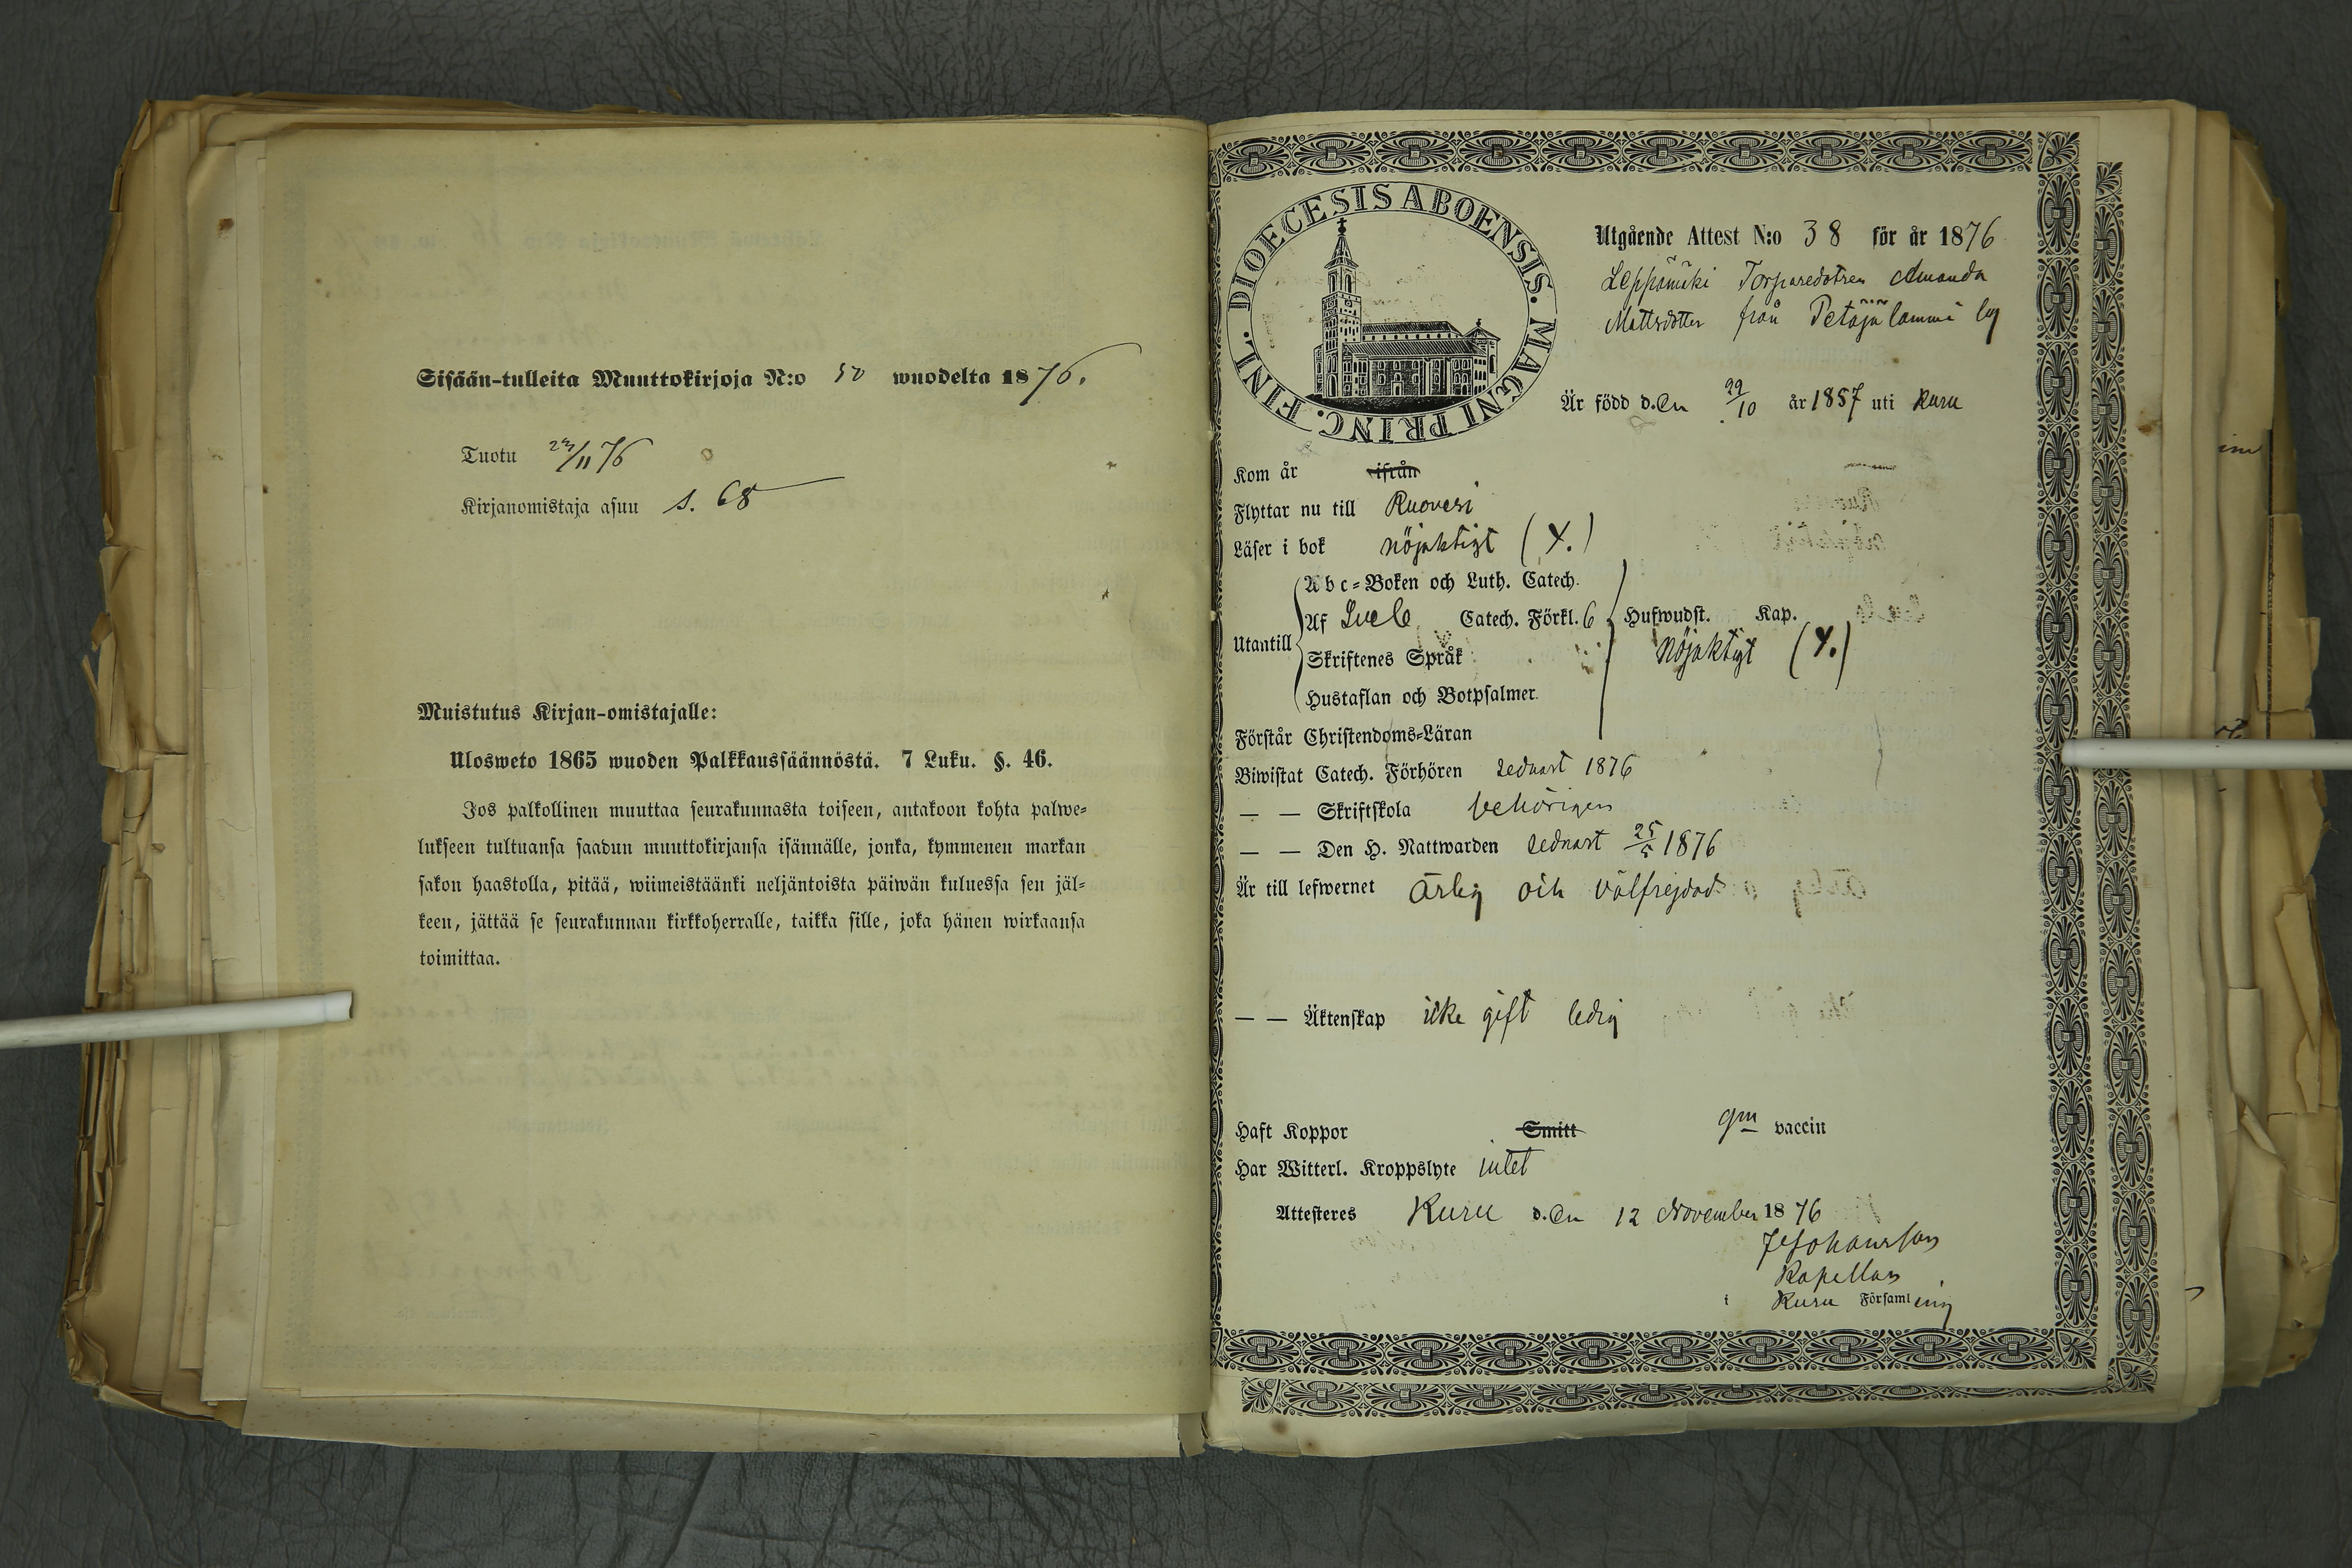 Sisään-tulleita Muuttokirjoja N:o 50 wuodelta 1876.
Tuotu 23/11 76
Kirjanomistaja asuu s. 68
Muistutus Kirjan-omistajalle:
Ulosweto 1865 wuoden Palkkaussäännöstä. 7 Luku. §. 46.
Jos palkollinen muuttaa seurakunnasta toiseen, antakoon kohta palwe-
lukseen tultuansa saadun muuttokirjansa isännälle, jonka, kymmenen markan
sakon haastolla, pitää, wiimeistäänki neljäntoista päiwän kuluessa sen jäl-
keen, jättää se seurakunnan kirkkoherralle, taikka sille, joka hänen wirkaansa
toimittaa.
DIOECESIS ABOENSIS. MAGNI PRINC. FINL.
Utgående Attest N:o 38 för år 1876
Leppämäki Torparedotren Amanda
Mattsdotter från Petäjälammi by
Är född d.en 22/10 år 1857 uti Kuru
Kom år ifrån
Flyttar nu till Ruovesi
Läser i bok nöjaktigt (Y.)
Utantill
Abc-Boken och Luth. Catech.
Af Svele Catech. Förkl. 6 Hufwudst. Kap.
Skriftenes Språk nöjaktigt (Y.)
Hustaflan och Botpsalmer.
Förstår Christendoms-Läran
Biwistat Catech. Förhören sednast 1876
— — Skriftskola behörigen
— — Den H. Nattwarden sednast 25/5 1876
Är till lefwernet ärlig och välfrejdad
— — Äktenskap icke gift ledig
Haft Koppor Smitt gm vaccin
Har Witterl. Kroppslyte intet
Attesteres Kuru d.en 12 November 1876
Johansson
Kapellan
i Kuru Församling